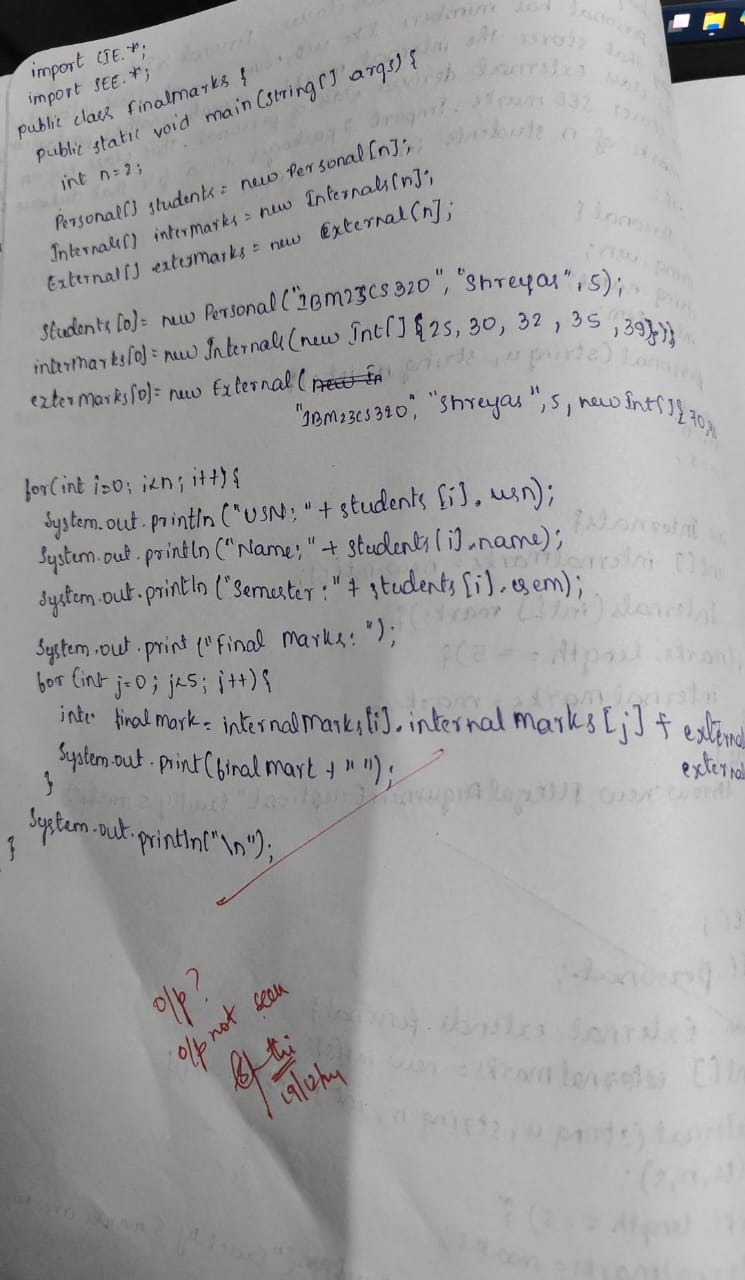 import CIE.*;
import SEE.*;
public class finalmarks {
public static void main (string[] args) {
int n=2;
Personal[] students = new Personal[n];
Internals[] intermarks = new Internals[n];
External[] extermarks = new External[n];
students[0]= new Personal ("1BM23CS320", "Shreyas", 5);
intermarks[0]= new Internals (new Int[] {25, 30, 32, 35, 39});
extermarks[0]= new External (
"1BM23CS320", "Shreyas", 5, new Int[]{70,
for(int i=0; i<n; i++) {
System.out.println ("USN: " + students [i]. usn);
System.out.println ("Name: " + students[i].name);
System.out.println ("Semester: " + students [i]. sem);
System.out.print ("Final marks: ");
for (int j=0; j<5; j++) {
int final mark = internalmarks[i]. internal marks [j] + external
external
System.out.print(final mark + " ");
}
System.out.println("\n");
}
o/p?
o/p not seen
19/12/24